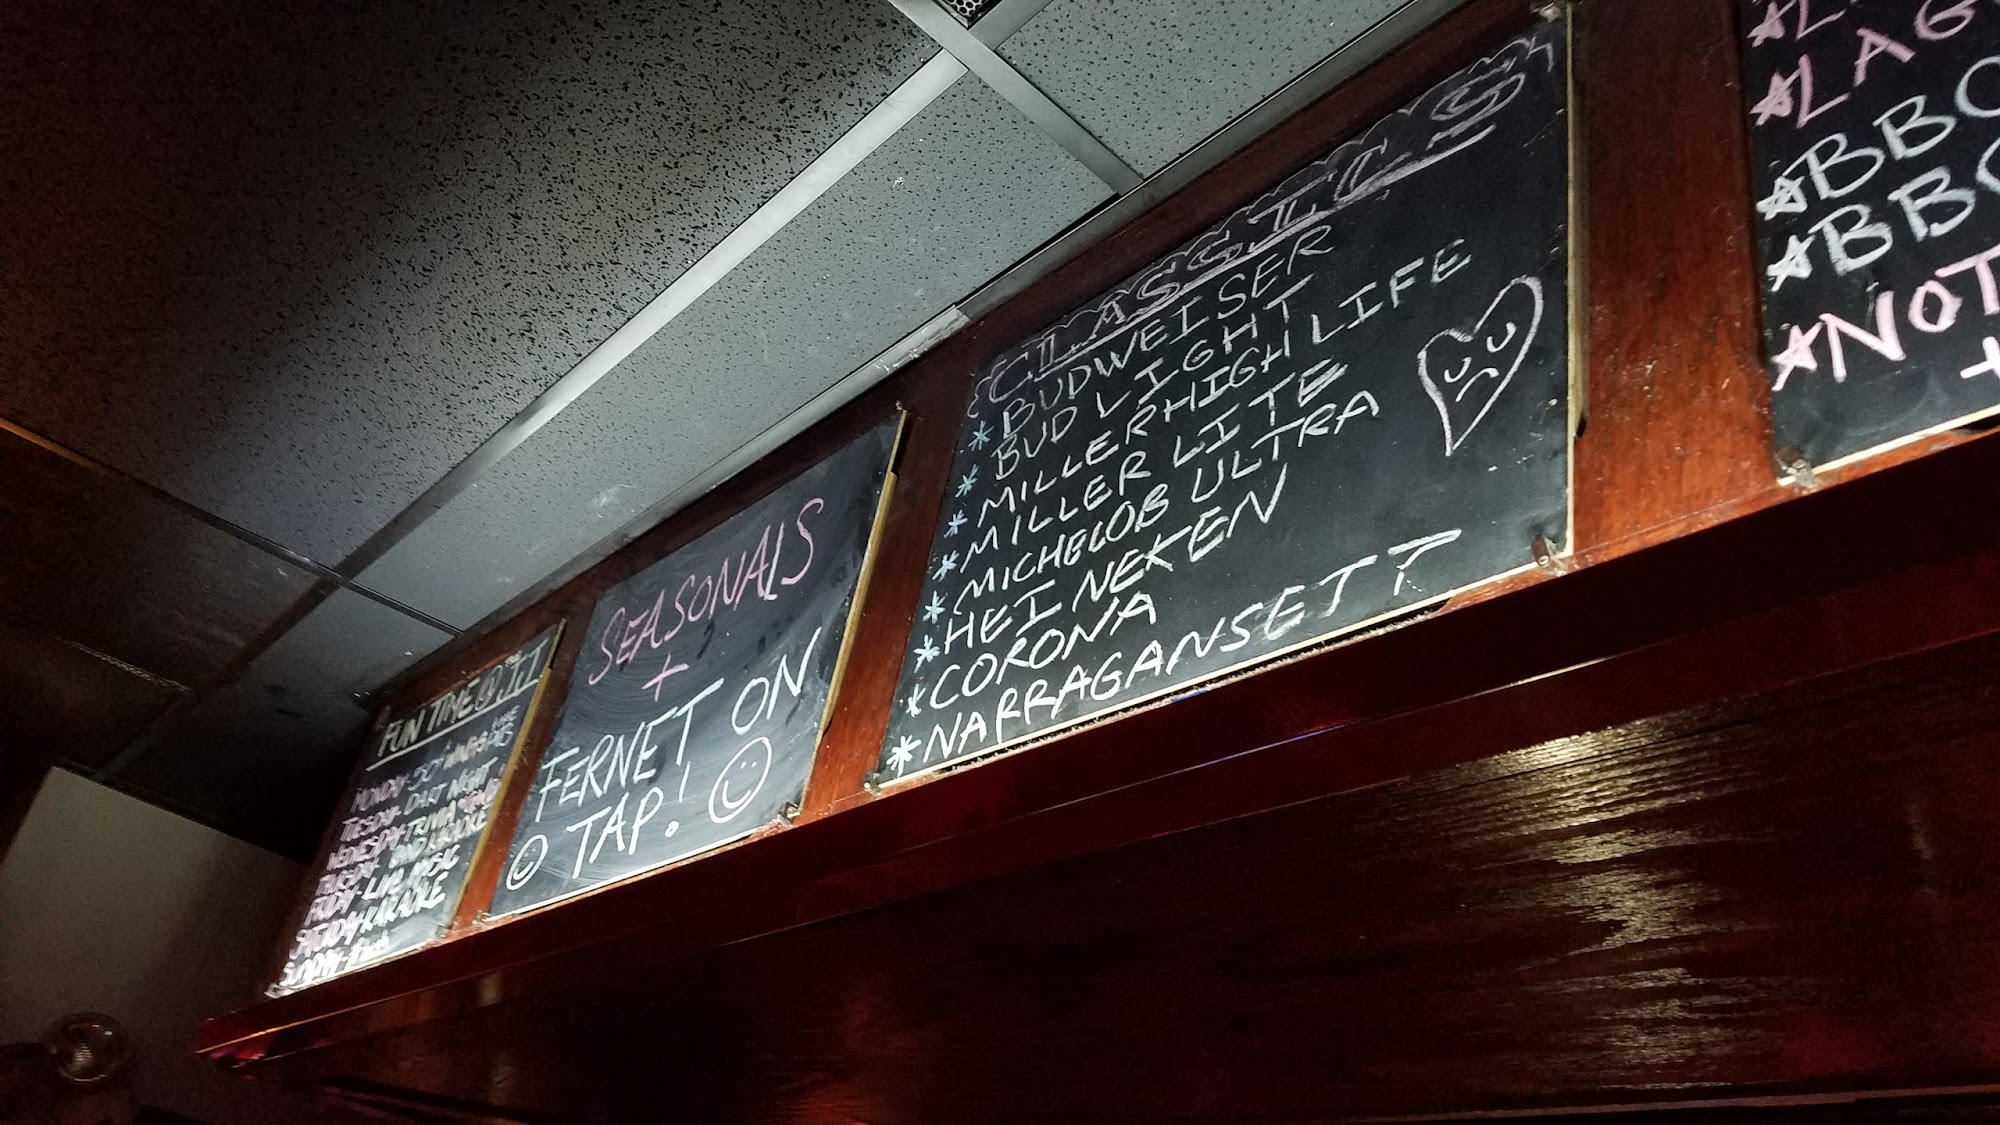 FUN TIME @ JJ
MONDAY - 50¢ WINGS
TUESDAY - DART NIGHT
WEDNESDAY - TRIVIA
THURSDAY - BAND KARAOKE
FRIDAY - LIVE MUSIC
SATURDAY - KARAOKE
SUNDAY -
SEASONALS
+
FERNET ON
TAP!
CLASSICS
* BUDWEISER
* BUD LIGHT
* MILLER HIGH LIFE
* MILLER LITE
* MICHELOB ULTRA
* HEINEKEN
* CORONA
* NARRAGANSETT
LAG
BBQ
BBQ
NOT
+